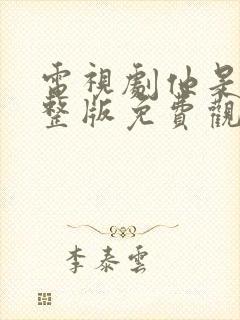 電視劇他是
整版免費觀
李泰雲